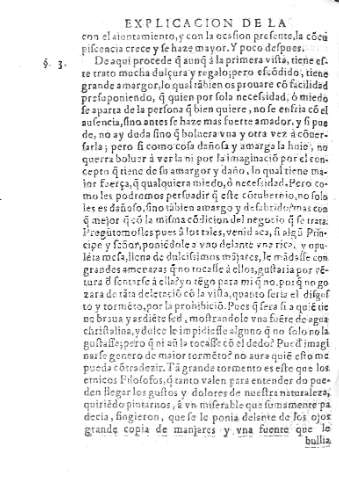 EXPLICACION DE LA
con el aiuntamiento, y con la ocasion presente, la cõcu
piscencia crece y se haze mayor. Y poco despues.
§. 3. De aqui procede q̃ aunq̃ à la primera vista, tiene es-
te trato mucha dulçura y regalo; pero escõdido, tiene
grande amargor, lo qual tãbien os prouare cõ facilidad
presuponiendo, q̃ quien por solo necessidad, ò miedo
se aparta de la persona q̃ bien quiere, no se enfria cõ el
ausencia, sino antes se haze mas fuerte amador, y si pue
de, no ay duda sino q̃ boluera vna y otra vez à cõuer-
sarla; pero si como cosa dañosa y amarga la huie, no
querra boluer à ver la ni por la imaginaciõ por el con-
cepto q̃ tiene de su amargor y daño, lo qual tiene ma-
ior fuerça, q̃ qualquiera miedo, ò necessidad. Pero co-
mo les podremos persuadir q̃ este cõtubernio, no solo
les es dañoso, sino tãbien amargo y desabrido? mas con
q̃ mejor q̃ cõ la misma cõdicion del negocio q̃ se trata.
Pregũtomosles pues à los tales, venid aca, si algũ Prin-
cipe y señor, poniẽdole à vno delante vna rica, y opu-
lẽta mesa, llena de dulcissimos mãjares, le mãdasse con
grandes amenazas q̃ no tocasse à ellos, gustaria por vẽ-
tura d̃ sentarse à ella? yo tẽgo para mi q̃ no, porq̃ no go
zara de tãta deletaciõ cõ la vista, quanto seria el disgus-
to y tormẽto, por la prohibiciõ. Pues q̃ sera si a quiẽ tie
ne braua y ardiẽte sed, mostrandole vna fuẽte de agua
christalina, y dulce le impidiesse alguno q̃ no solo no la
gustasse; pero q̃ ni aũ la tocasse cõ el dedo? Pued̃ imagi
narse genero de maior tormẽto? no aura quiẽ esto me
pueda cõtradezir. Tã grande tormento es este que los
etnicos Filosofos, q̃ tanto valen para entender do pue-
den llegar los gustos y dolores de nuestra naturaleza,
quiriẽdo pintarnos, à vn miserable que sumamente pa
decia, fingieron, que se le ponia delante de los ojos
grande copia de manjares y vna fuente que le
bullia